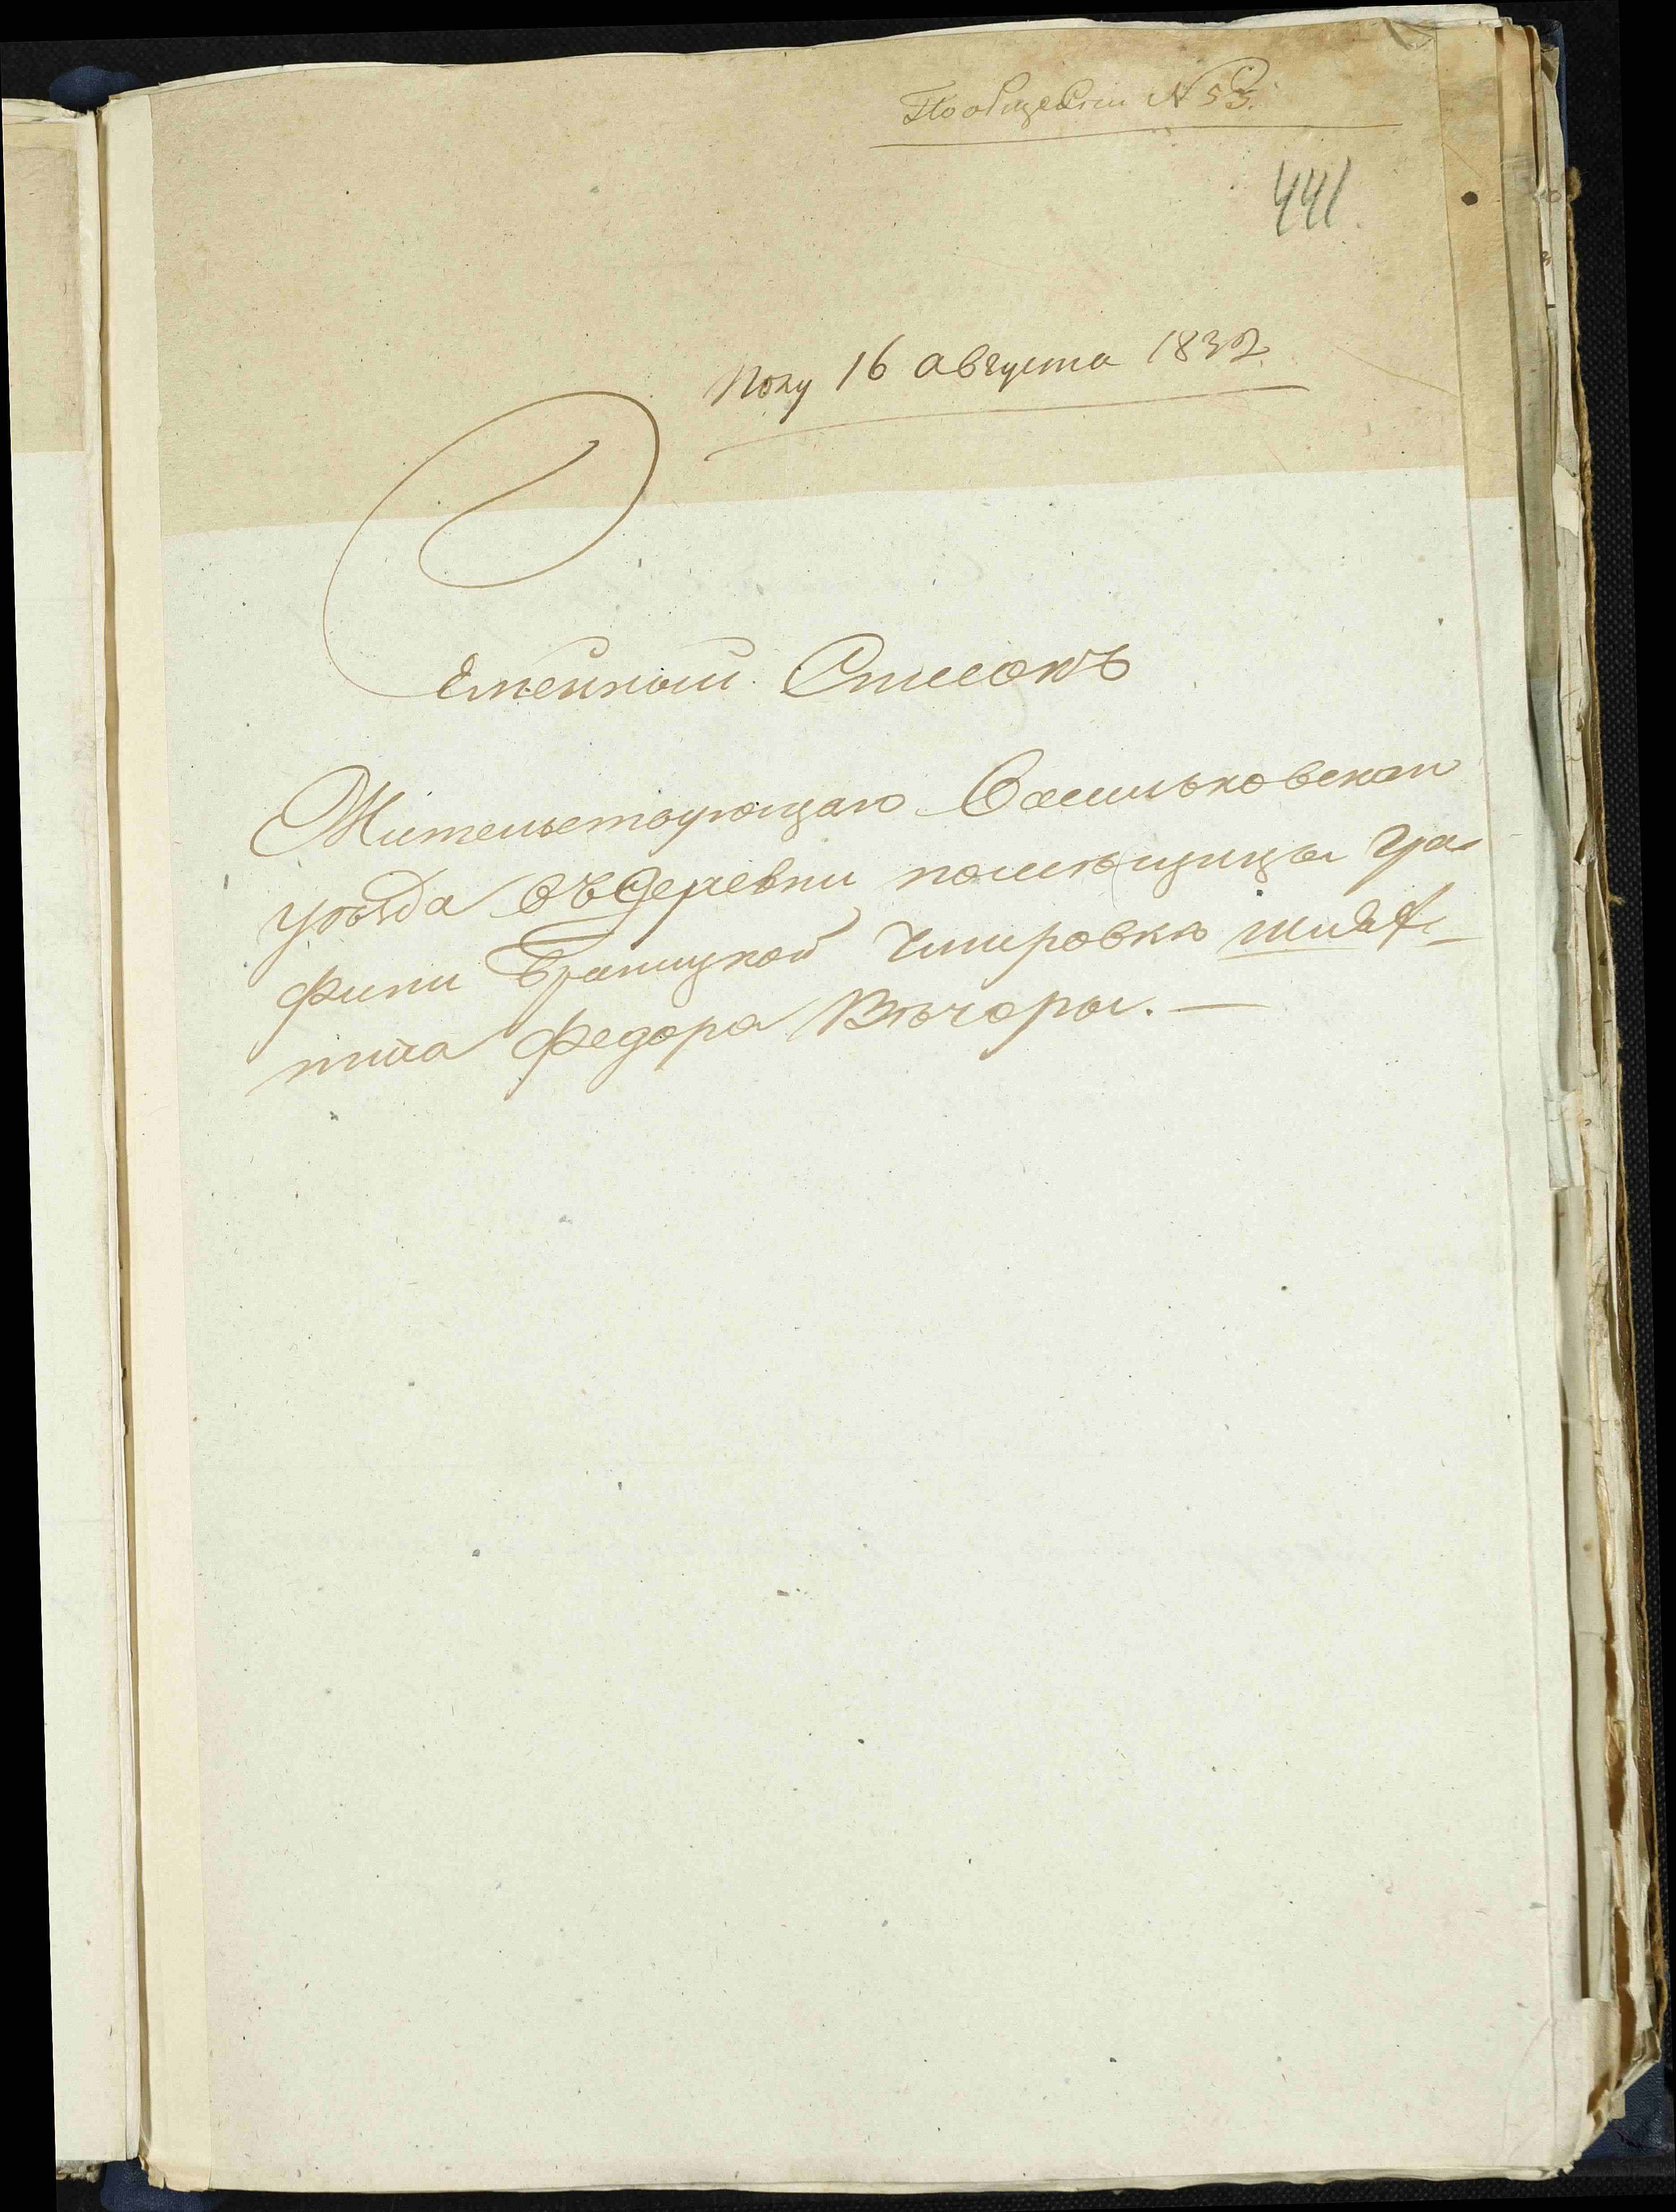 По общей опи N 53.
441.
Полу 16 августа 1832
Семейный Список
Жительствующаго Васильковскаго
уезда въ деревни помѣщицы Гра-
фини Браницкой Чмировкѣ шлях-
тича Федора Вѣчоры. —